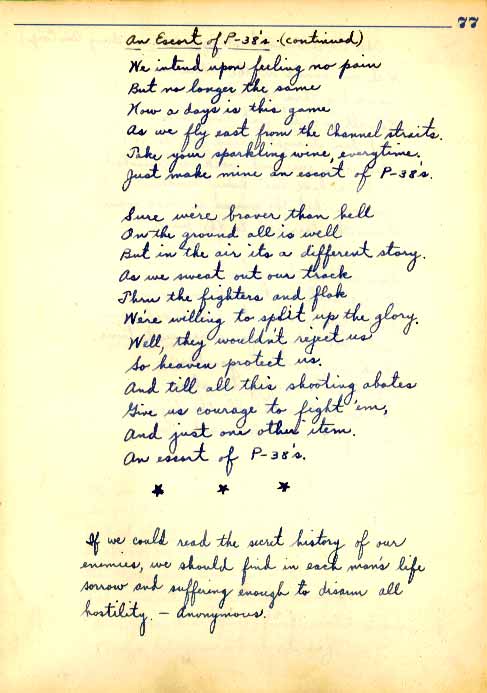 77
An Escort of P-38's. (continued)
We intend upon feeling no pain
But no longer the same
Now a days is this game
As we fly east from the Channel straits.
Take your sparkling wine, everytime.
Just make mine an escort of P-38's.
Sure we're braver than hell
On the ground all is well
But in the air its a different story.
As we sweat out our track
Thru the fighters and flak
We're willing to split up the glory.
Well, they wouldn't reject us
So heaven protect us.
And till all this shooting abates
Give us courage to fight 'em,
And just one other item.
An escort of P-38's.
If we could read the secret history of our
enemies, we should find in each man's life
sorrow and suffering enough to disarm all
hostility. – Anonymous.